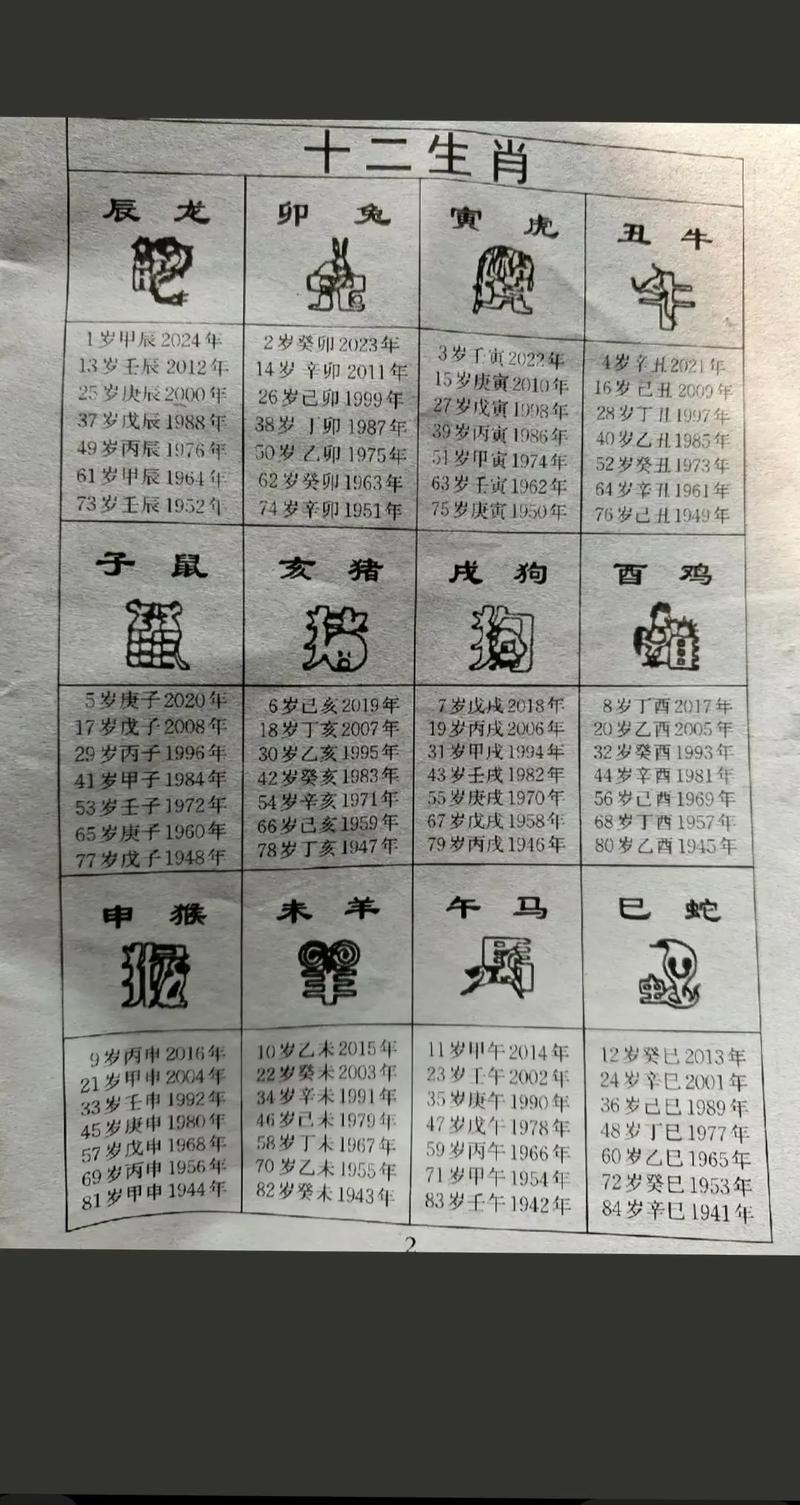 十二生肖
辰 龙
1岁甲辰2024年
13岁壬辰2012年
25岁庚辰2000年
37岁戊辰1988年
49岁丙辰1976年
61岁甲辰1964年
73岁壬辰1952年
卯 兔
2岁癸卯2023年
14岁辛卯2011年
26岁己卯1999年
38岁丁卯1987年
50岁乙卯1975年
62岁癸卯1963年
74岁辛卯1951年
寅 虎
3岁壬寅2022年
15岁庚寅2010年
27岁戊寅1998年
39岁丙寅1986年
51岁甲寅1974年
63岁壬寅1962年
75岁庚寅1950年
丑 牛
4岁辛丑2021年
16岁己丑2009年
28岁丁丑1997年
40岁乙丑1985年
52岁癸丑1973年
64岁辛丑1961年
76岁己丑1949年
子 鼠
鼠
5岁庚子2020年
17岁戊子2008年
29岁丙子1996年
41岁甲子1984年
53岁壬子1972年
65岁庚子1960年
77岁戊子1948年
亥 猪
猪
6岁己亥2019年
18岁丁亥2007年
30岁乙亥1995年
42岁癸亥1983年
54岁辛亥1971年
66岁己亥1959年
78岁丁亥1947年
戌 狗
狗
7岁戊戌2018年
19岁丙戌2006年
31岁甲戌1994年
43岁壬戌1982年
55岁庚戌1970年
67岁戊戌1958年
79岁丙戌1946年
酉 鸡
8岁丁酉2017年
20岁乙酉2005年
32岁癸酉1993年
44岁辛酉1981年
56岁己酉1969年
68岁丁酉1957年
80岁乙酉1945年
申 猴
猴
9岁丙申2016年
21岁甲申2004年
33岁壬申1992年
45岁庚申1980年
57岁戊申1968年
69岁丙申1956年
81岁甲申1944年
未 羊
羊
10岁乙未2015年
22岁癸未2003年
34岁辛未1991年
46岁己未1979年
58岁丁未1967年
70岁乙未1955年
82岁癸未1943年
午 马
馬
11岁甲午2014年
23岁壬午2002年
35岁庚午1990年
47岁戊午1978年
59岁丙午1966年
71岁甲午1954年
83岁壬午1942年
巳 蛇
蛇
12岁癸巳2013年
24岁辛巳2001年
36岁己巳1989年
48岁丁巳1977年
60岁乙巳1965年
72岁癸巳1953年
84岁辛巳1941年
2